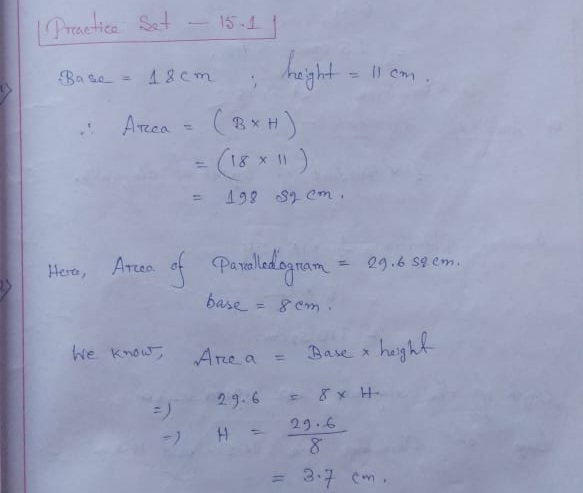 Practice Set - 15.1
Base = 18 cm ; height = 11 cm.
∴ Area = (B × H)
= (18 × 11)
= 198 sq cm.
Here, Area of Paralledogram = 29.6 sq cm.
base = 8 cm.
We know, Area = Base × height
=) 29.6 = 8 × H
=) H = 29.6/8
= 3.7 cm.